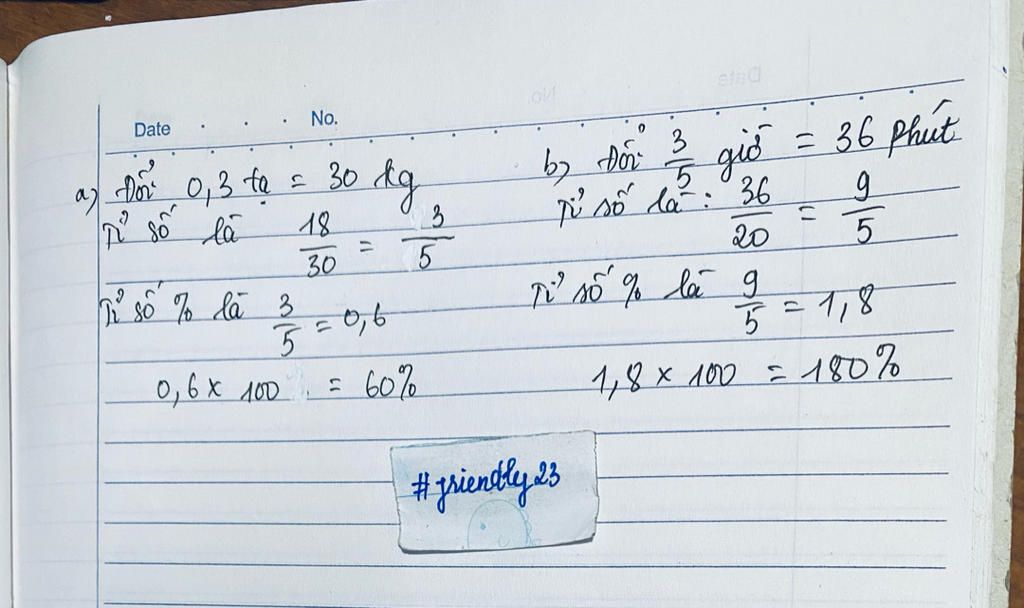 Date No.
a) Đổi 0,3 tạ = 30 kg
Tỉ số là 18/30 = 3/5
Tỉ số % là 3/5 = 0,6
0,6 x 100 = 60%
b) Đổi 3/5 giờ = 36 phút
Tỉ số là: 36/20 = 9/5
Tỉ số % là 9/5 = 1,8
1,8 x 100 = 180%
#friendly23